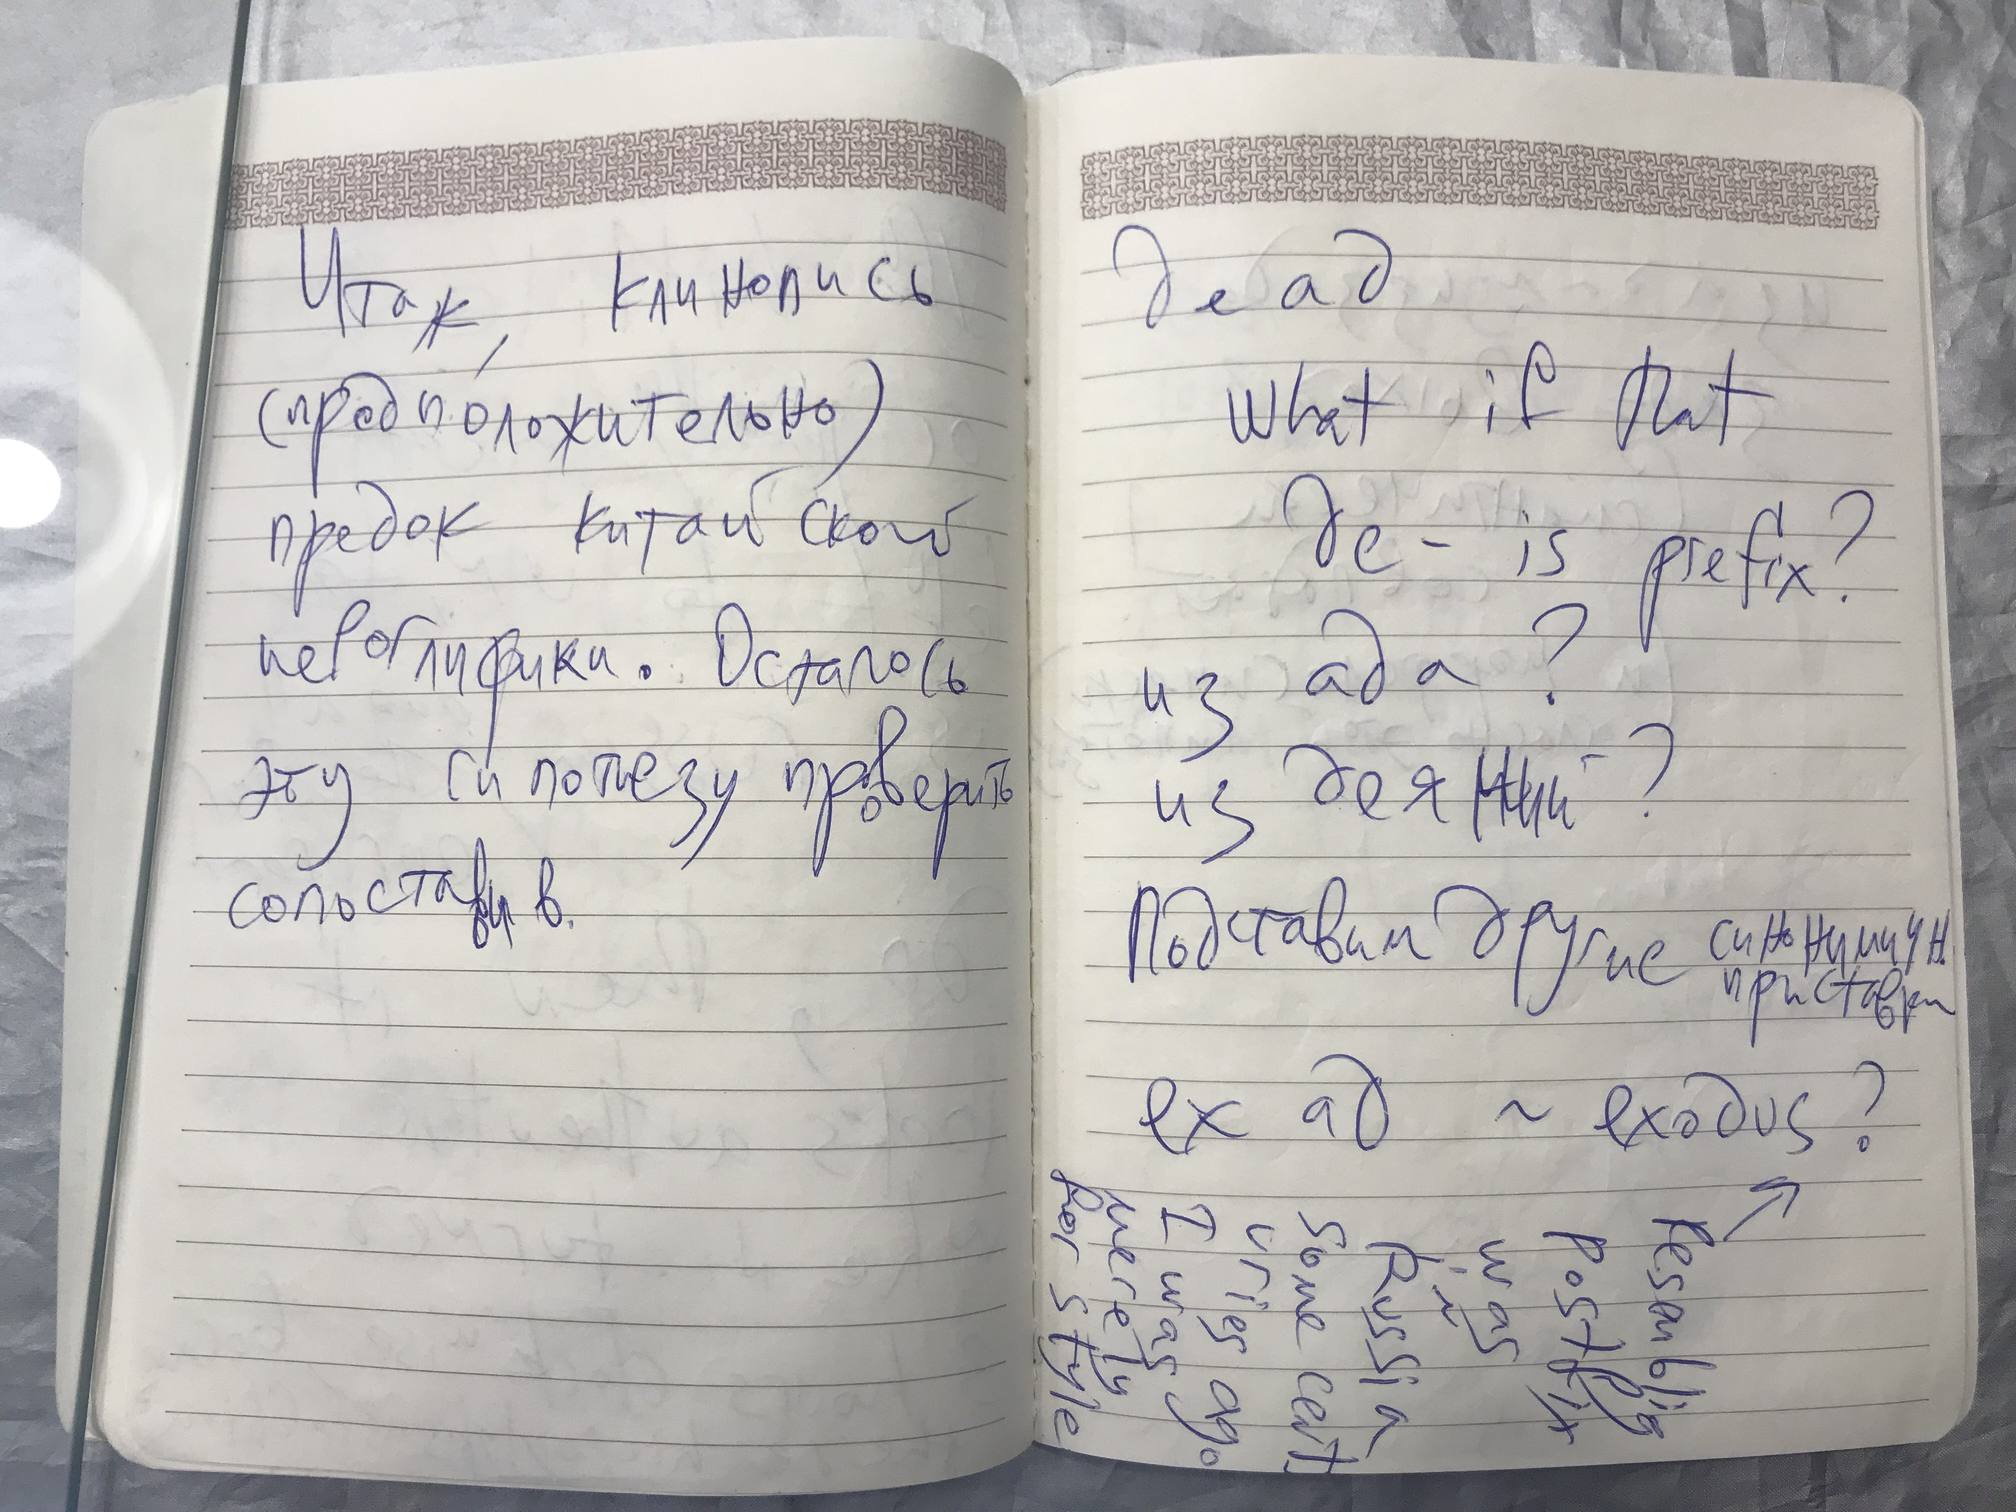 Итак, клинопись
(предположительно)
предок китайской
иероглифики. Осталось
эту гипотезу проверить
сопоставив.
dead
What if that
de- is prefix?
из ада?
из деяний?
Подставим другие синонимичн.
приставки
ex ad ~ exodus?
Resamblig
Postfix
was
in
Russia
Some cent
uries ago
I was
merely
for style